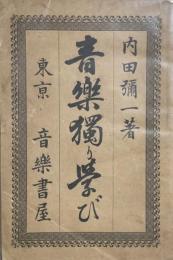 内田彌一著
音樂獨り学び
東京 音樂書屋